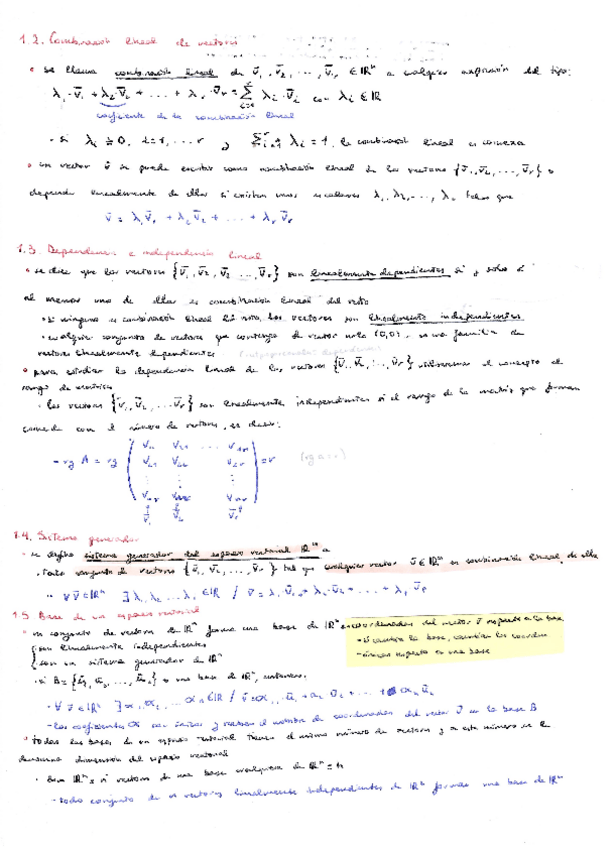 1.2. Combinación lineal de vectores
• se llama combinación lineal de v̄₁, v̄₂, ..., v̄ᵣ ∈ ℝⁿ a cualquier expresión del tipo:
λ₁·v̄₁ + λ₂·v̄₂ + ... + λᵣ·v̄ᵣ = Σ λᵢ·v̄ᵢ con λᵢ ∈ ℝ
coeficiente de la combinación lineal
- si λᵢ ≥ 0, i=1,...r y Σ λᵢ = 1, la combinación lineal es convexa
• un vector v̄ se puede escribir como combinación lineal de los vectores {v̄₁, v̄₂, ..., v̄ᵣ} o
depende linealmente de ellos si existen unos escalares λ₁, λ₂, ..., λᵣ tales que
v̄ = λ₁v̄₁ + λ₂v̄₂ + ... + λᵣv̄ᵣ
1.3. Dependencia e independencia lineal
• se dice que los vectores {v̄₁, v̄₂, v̄₃ ... v̄ᵣ} son linealmente dependientes si y solo si
al menos uno de ellos es combinación lineal del resto
• si ninguno es combinación lineal del resto, los vectores son linealmente independientes.
• cualquier conjunto de vectores que contenga el vector nulo (0,0) es una familia de
vectores linealmente dependientes
• para estudiar la dependencia lineal de los vectores {v̄₁, v̄₂, ..., v̄ᵣ} utilizaremos el concepto de
rango de matrices
• los vectores {v̄₁, v̄₂, ... v̄ᵣ} son linealmente independientes si el rango de la matriz que forman
coincide con el número de vectores, es decir:
- rg A = rg = r
v̄₁ v̄₂ v̄ᵣ
1.4. Sistema generador
• se define sistema generador del espacio vectorial ℝⁿ a
• todo conjunto de vectores {v̄₁, v̄₂, ..., v̄ᵣ} tal que cualquier vector v̄ ∈ ℝⁿ es combinación lineal de ellos
·· ∀ v̄ ∈ ℝⁿ ∃ λ₁, λ₂ ... λᵣ ∈ ℝ / v̄ = λ₁·v̄₁ + λ₂·v̄₂ + ... + λᵣ v̄ᵣ
1.5 Base de un espacio vectorial
• un conjunto de vectores de ℝⁿ forma una base de ℝⁿ si
son linealmente independientes
son un sistema generador de ℝⁿ
coordenadas del vector v̄ respecto a la base
• si cambia la base, cambian las coordenadas
• únicas respecto a una base
• si B = {ū₁, ū₂, ..., ūₙ} es una base de ℝⁿ, entonces:
- ∀ v̄ ∈ ℝⁿ ∃ α₁, α₂, ... αₙ ∈ ℝ / v̄ = α₁ū₁ + α₂ū₂ + ... + αₙūₙ
- los coeficientes α son únicos y reciben el nombre de coordenadas del vector v̄ en la base B
• todas las bases de un espacio vectorial tienen el mismo número de vectores y a este número se le
denomina dimensión del espacio vectorial
• dim ℝⁿ = nº vectores de una base cualquiera de ℝⁿ = n
- todo conjunto de n vectores linealmente independientes de ℝⁿ forman una base de ℝⁿ